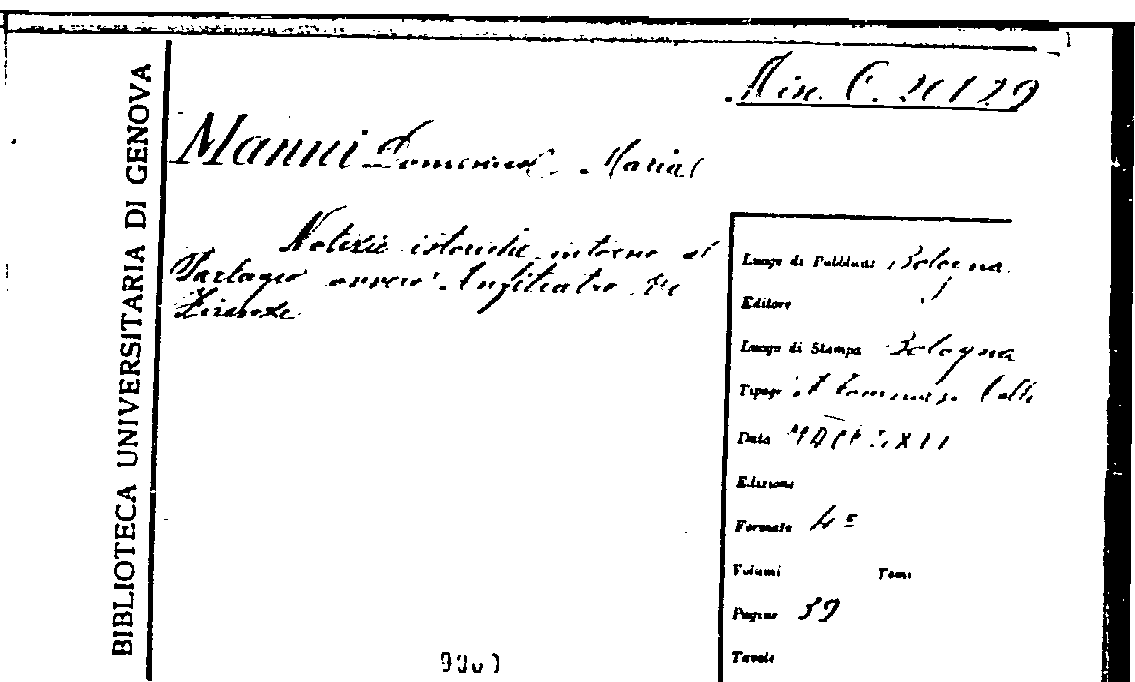 BIBLIOTECA UNIVERSITARIA DI GENOVA
Misc. C.
Manni Domenico Maria
Notizie istoriche intorno al
Parlagio ovvero Anfiteatro di
Firenze
Luogo di Pubblicaz. Bologna
Editore
Luogo di Stampa Bologna
Tipogr. S. Tommaso
Data
Edizione
Formato 4º
Volumi Tomi
Pagine 39
Tavole